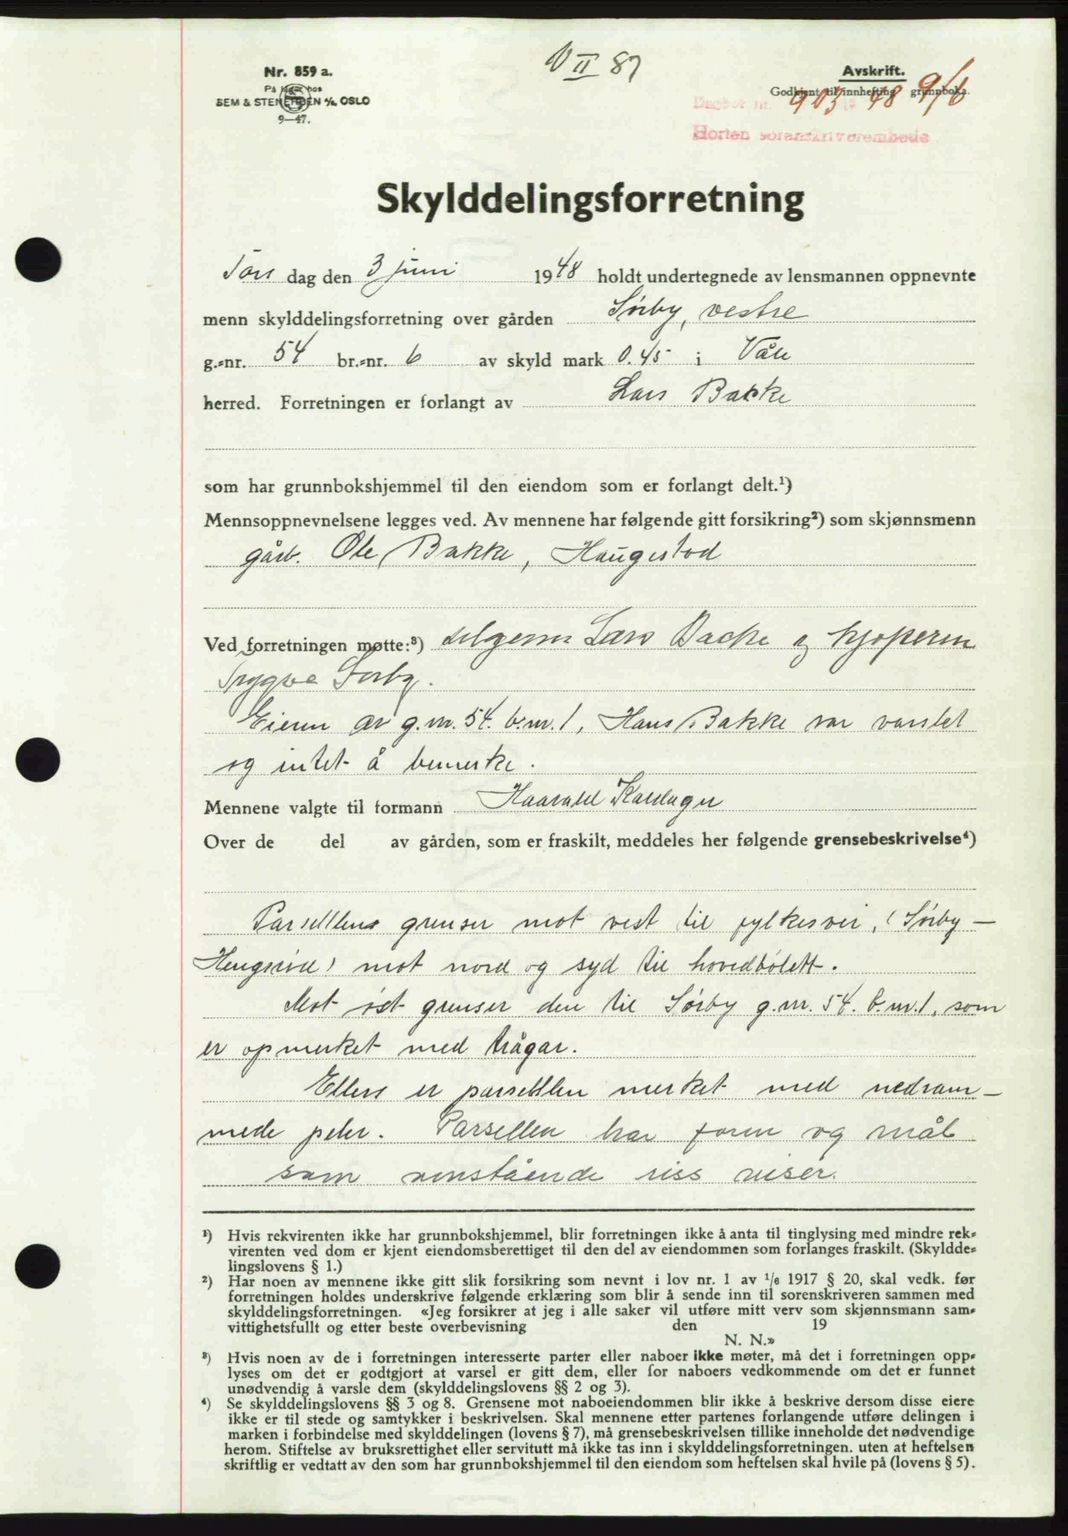 V II 87
Nr. 859 a.
På lager hos
SEM & STENERSEN A/S, OSLO
9—47.
Avskrift.
Godkjent til innhefting i grunnboka.
Dagbok nr. 903 48 9/6
Horten sorenskriverembede
Skylddelingsforretning
Tors dag den 3 juni 1948 holdt undertegnede av lensmannen oppnevnte
menn skylddelingsforretning over gården Sørby, vestre
g.-nr. 54 br.-nr. 6 av skyld mark 0.45 i Våle
herred. Forretningen er forlangt av Lars Bakke
som har grunnbokshjemmel til den eiendom som er forlangt delt.¹)
Mennsoppnevnelsene legges ved. Av mennene har følgende gitt forsikring²) som skjønnsmenn
gårb. Ole Bakke, Haugestad
Ved forretningen møtte:³) selgeren Lars Bakke og kjøperen
Trygve Sørby.
Eieren av g.nr. 54. b.nr. 1, Hans Bakke var varslet
og intet å bemerke.
Mennene valgte til formann Haavald
Over de del av gården, som er fraskilt, meddeles her følgende grensebeskrivelse⁴)
Parsellens grenser mot vest til fylkesvei, (Sørby—
Hengsrød) mot nord og syd til hovedbølett.
Mot øst grenser den til Sørby g.nr. 54. b.nr. 1, som
er opmerket med trågar.
Ellers er parsellen merket med nedram—
mede peler. Parsellen har form og mål
som omstående riss viser.
¹) Hvis rekvirenten ikke har grunnbokshjemmel, blir forretningen ikke å anta til tinglysing med mindre rek-
virenten ved dom er kjent eiendomsberettiget til den del av eiendommen som forlanges fraskilt. (Skyldde-
lingslovens § 1.)
²) Har noen av mennene ikke gitt slik forsikring som nevnt i lov nr. 1 av 1/6 1917 § 20, skal vedk. før
forretningen holdes underskrive følgende erklæring som blir å sende inn til sorenskriveren sammen med
skylddelingsforretningen. «Jeg forsikrer at jeg i alle saker vil utføre mitt verv som skjønnsmann sam-
vittighetsfullt og etter beste overbevisning den 19
N. N.»
³) Hvis noen av de i forretningen interesserte parter eller naboer ikke møter, må det i forretningen opp-
lyses om det er godtgjort at varsel er gitt dem, eller for naboers vedkommende om det er funnet
unødvendig å varsle dem (skylddelingslovens §§ 2 og 3).
⁴) Se skylddelingslovens §§ 3 og 8. Grensene mot naboeiendommen blir ikke å beskrive dersom disse eiere
ikke er til stede og samtykker i beskrivelsen. Skal mennene etter partenes forlangende utføre delingen i
marken i forbindelse med skylddelingen (lovens § 7), må grensebeskrivelsen tillike inneholde det nødvendige
herom. Stiftelse av bruksrettighet eller servitutt må ikke tas inn i skylddelingsforretningen. uten at heftelsen
skriftlig er vedtatt av den som har grunnbokshjemmel til den eiendom som heftelsen skal hvile på (lovens § 5).